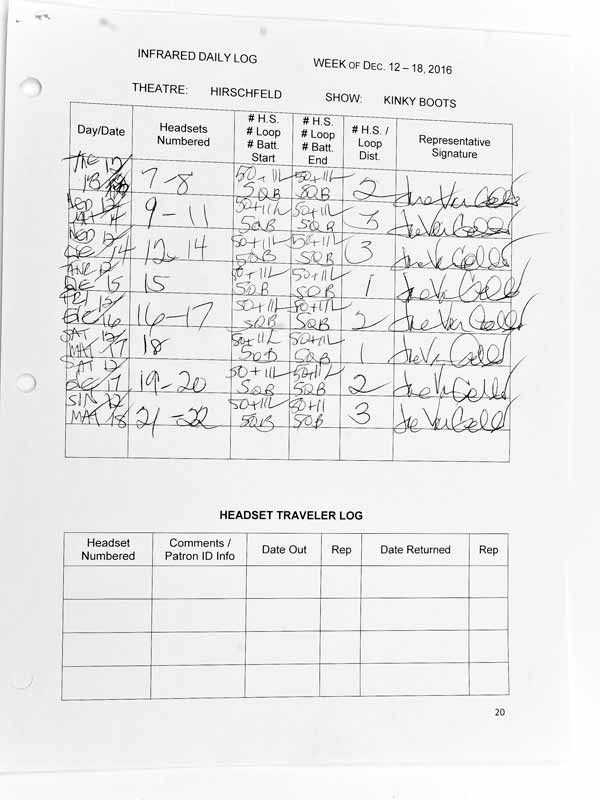 INFRARED DAILY LOG WEEK OF DEC. 12 – 18, 2016
THEATRE: HIRSCHFELD SHOW: KINKY BOOTS
Day/Date Headsets Numbered # H.S. # Loop # Batt. Start # H.S. # Loop # Batt. End # H.S. / Loop Dist. Representative Signature
12/ 7-8 50+11L 50B 50+11L 50B 2
WED 12/14 MAT 9-11 50+11L 50B 50+11L 50B 3
WED 12/14 12-14 50+11L 50B 50+11L 50B 3
12/15 15 50+11L 50B 50+11L 50B 1
FRI 12/16 16-17 50+11L 50B 50+11L 50B 2
SAT 12/17 MAT 18 50+11L 50B 50+11L 50B 1
SAT 12/17 19-20 50+11L 50B 50+11L 50B 2
SUN 12/18 MAT 21-22 50+11L 50B 50+11 50B 3
HEADSET TRAVELER LOG
Headset Numbered Comments / Patron ID Info Date Out Rep Date Returned Rep
20